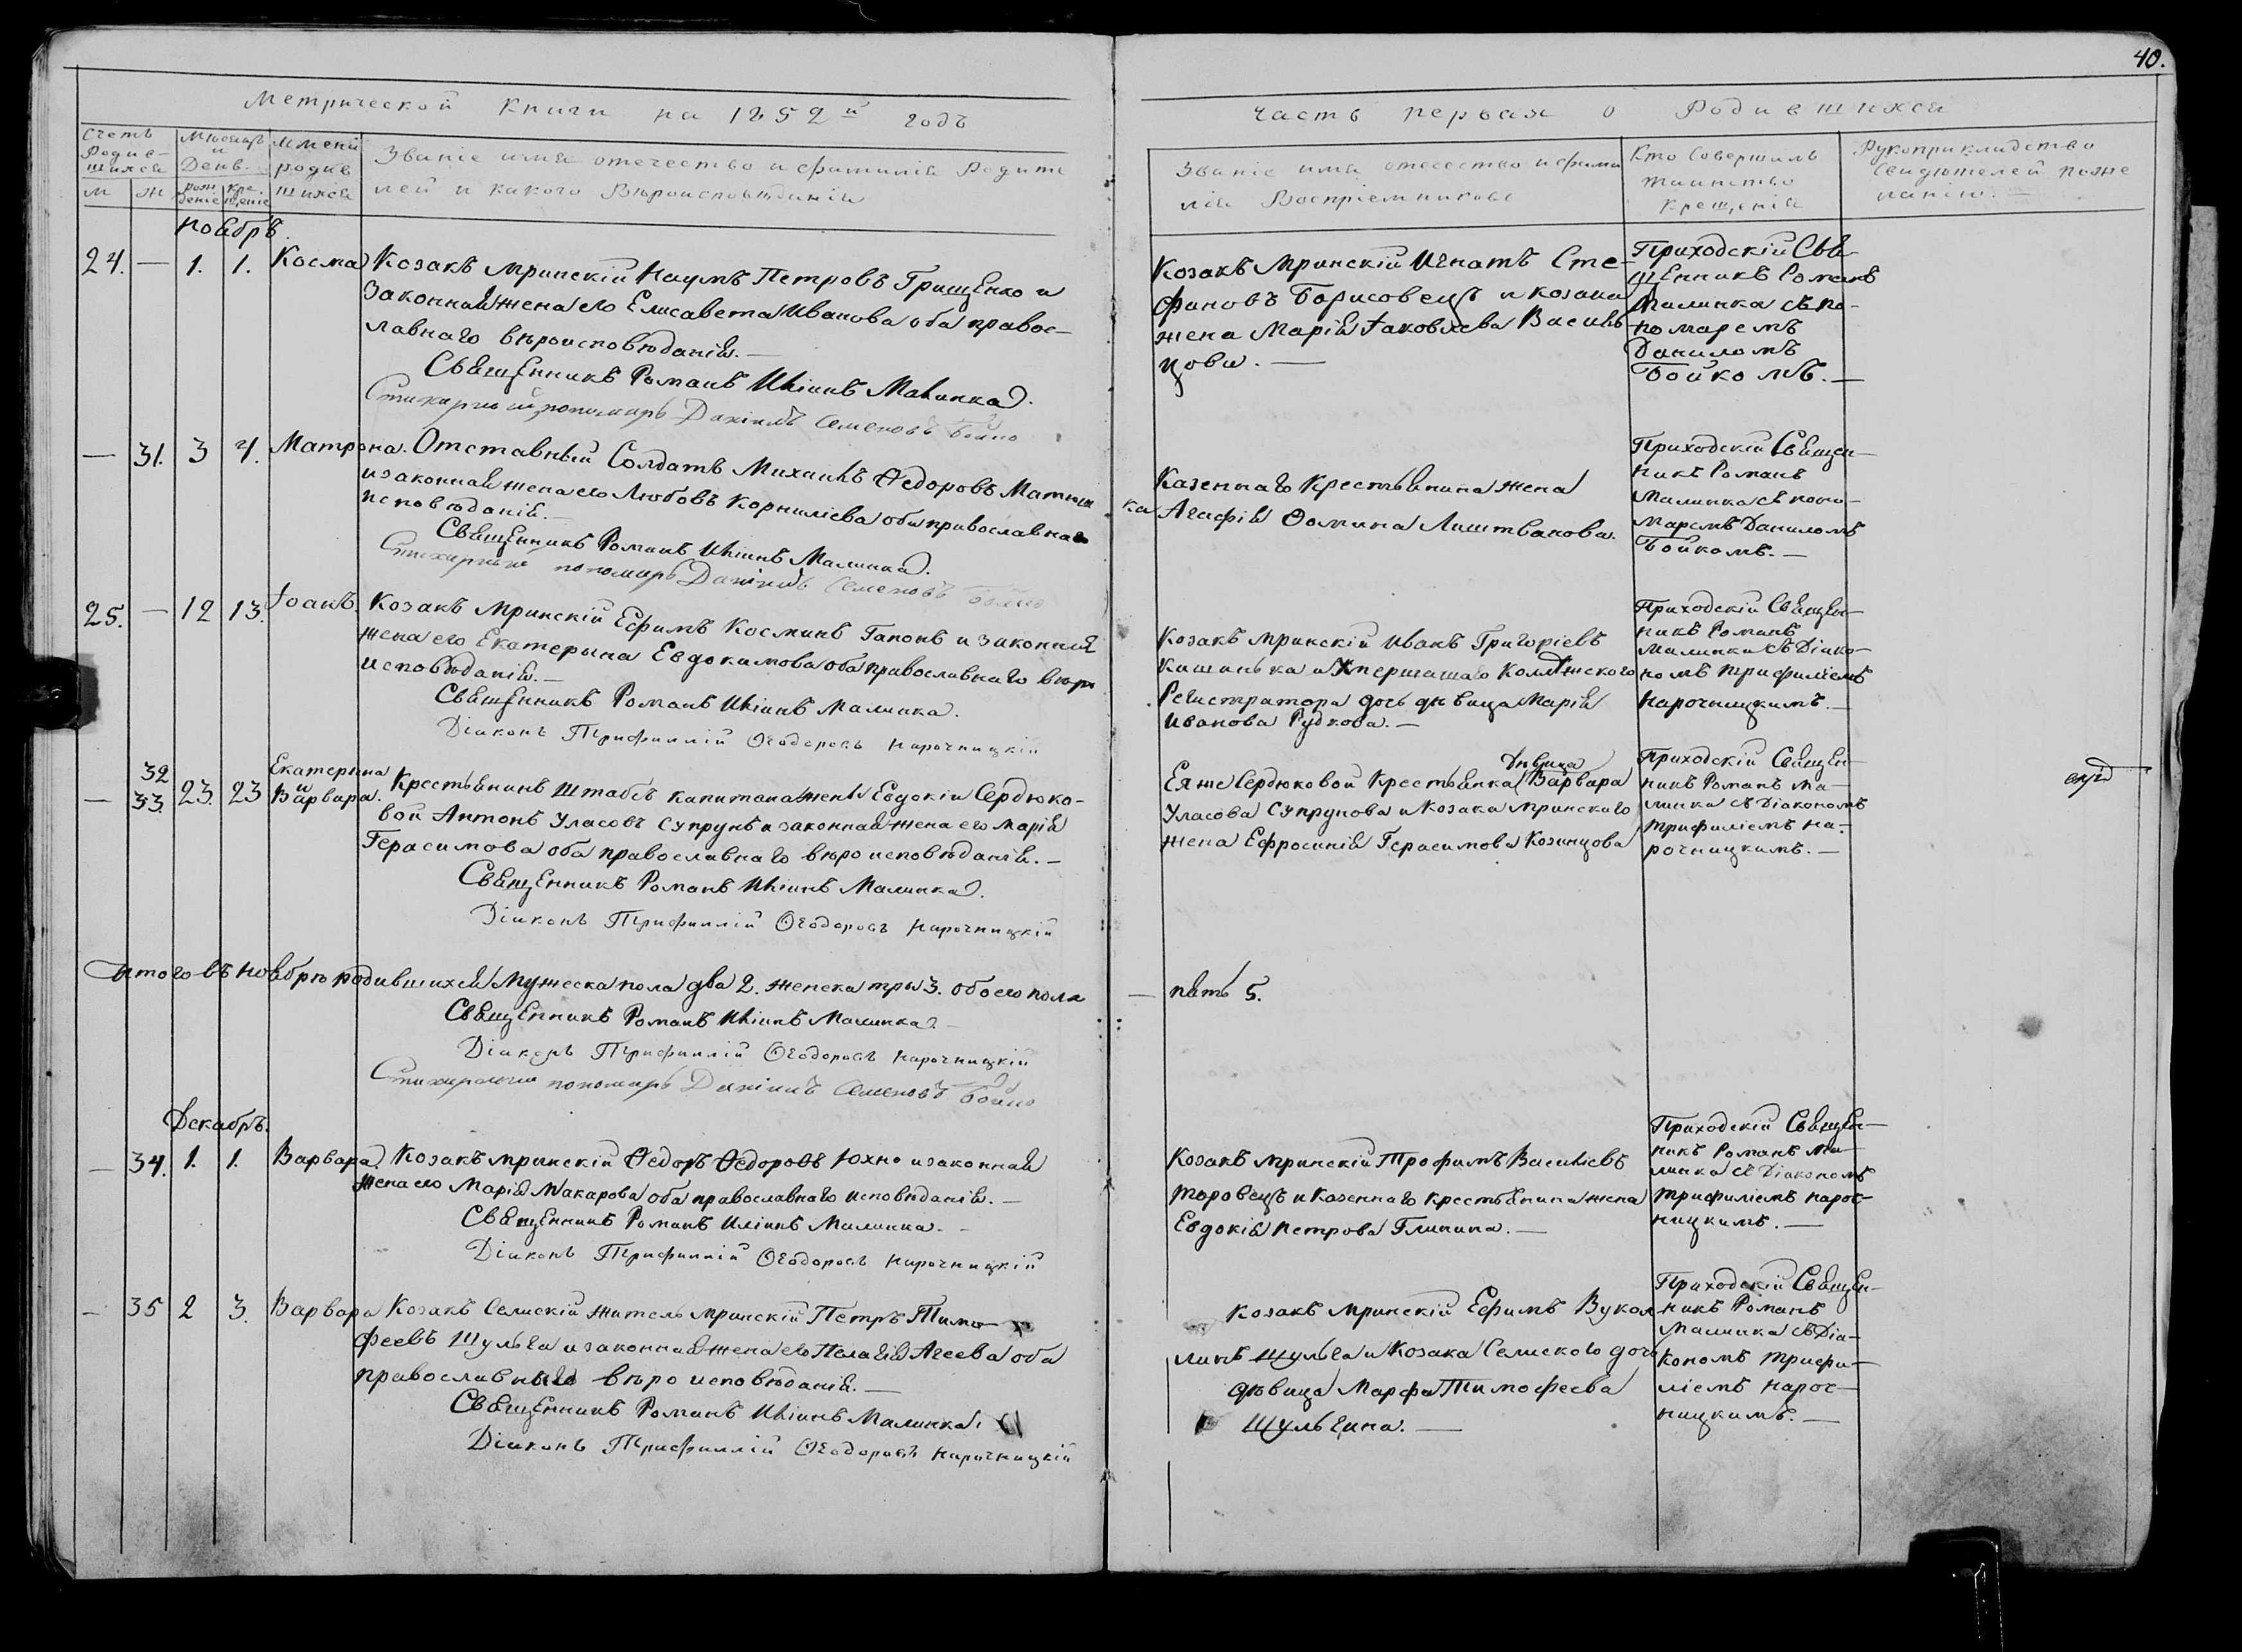 40.
Метрической Книги на 1852й годъ
Часть первая о Родившихся
Счетъ Родив-шихся
М
Ж
Мѣсяцъ и День.
рож деніе
кре. щеніе
Имена родив шихся
Званіе имя отечество и фамилія Родите
лей и какого Вѣроисповѣданія
Званіе имя отечество и фами
лія Воспріемниковъ
Кто Совершилъ
таинство
крещенія
Рукоприкладство
Свидѣтелей поже
ланію.
Ноябрь
24. — 1. 1. Косма
Козакъ Мринскій Наумъ Петровъ Грищенко и
Законная жена его Елисавета Иванова оба правос-
лавнаго вѣроисповѣданія. —
Священникъ Романъ Иліинъ Малинка.
Стихарный пономарь Даніилъ Семеновъ Бойко
Козакъ Мринскій Игнатъ Сте-
фановъ Борисовецъ и козака
жена Марія Іаковлева Василь-
цова. —
Приходскій Свя-
щенникъ Романъ
Малинка съ по-
номаремъ
Даниломъ
Бойкомъ. —
— 31. 3 4. Матрона.
Отставный Солдатъ Михаилъ Ѳедоровъ Матюш
ка
и законная жена его Любовъ Корниліева оба православнаго
исповѣданія. —
Священникъ Романъ Иліинъ Малинка.
Стихарный пономарь Даніилъ Семеновъ Бойко
Казеннаго Крестьянина жена
Агафія Ѳомина Лиштванова.
Приходскій Священ-
никъ Романъ
Малинка съ поно-
маремъ Даниломъ
Бойкомъ. —
25. — 12 13. Іоанъ.
Козакъ Мринскій Ефимъ Косминъ Гапонъ и законная
жена его Екатерына Евдокимова оба православнаго вѣро
исповѣданія. —
Священникъ Романъ Иліинъ Малинка.
Діаконъ Трифиллій Ѳеодоровъ Нарочницкій
Козакъ Мринскій Иванъ Григоріевъ
Кишинька и
Регистратора дочь дѣвица Марія
Иванова Рудкова. —
Приходскій Священ-
никъ Романъ
Малинка съ Діако-
номъ Трифиліемъ
Нарочницкимъ. —
— 32 33. 23. 23 Екатерина и Варвара.
Крестьянинъ Штабсъ капитана жены Евдокіи Сердюко-
вой Антонъ Уласовъ Супрунъ и законная жена его Марія
Герасимова оба православнаго вѣроисповѣданія. —
Священникъ Романъ Иліинъ Малинка.
Діаконъ Трифиллій Ѳеодоровъ Нарочницкій
Дѣвица
Ея же Сердюковой Крестьянка Варвара
Уласова Супрунова и Козака Мринскаго
жена Ефросинія Герасимова Козинцова
Приходскій Священ-
никъ Романъ Ма-
линка съ Діакономъ
Трифиліемъ На-
рочницкимъ. —
Итого въ Ноябрѣ родившихся Мужеска пола два 2. женска тры 3. обоего пола
— пять 5.
Священникъ Романъ Иліинъ Малинка. —
Діаконъ Трифиллій Ѳеодоровъ Нарочницкій
Стихарный пономарь Даніилъ Семеновъ Бойко
Декабрь.
— 34. 1. 1. Варвара.
Козакъ Мринскій Ѳедоръ Ѳедоровъ Юхно и законная
жена его Марія Макарова оба православнаго исповѣданія. —
Священникъ Романъ Иліинъ Малинка. —
Діаконъ Трифиллій Ѳеодоровъ Нарочницкій
Козакъ Мринскій Трофимъ Василіевъ
Торовецъ и Казеннаго крестьянина жена
Евдокія Петрова Глинина. —
Приходскій Священ-
никъ Романъ Ма-
линка съ Діакономъ
Трифиліемъ Нароч-
ницкимъ. —
— 35 2 3. Варвара
Козакъ Семскій житель Мринскій Петръ Тимо-
феевъ Шульга и законная жена его Пелагія Агеева оба
православнаго вѣроисповѣданія. —
Священникъ Романъ Иліинъ Малинка.
Діаконъ Трифиллій Ѳеодоровъ Нарочницкій
Козакъ Мринскій Ефимъ Вукол
линъ Шульга и Козака Семского дочь
дѣвица Марфа Тимофеева
Шульгина. —
Приходскій Священ-
никъ Романъ
Малинка съ Діа-
кономъ Трифи-
ліемъ Нароч-
ницкимъ. —